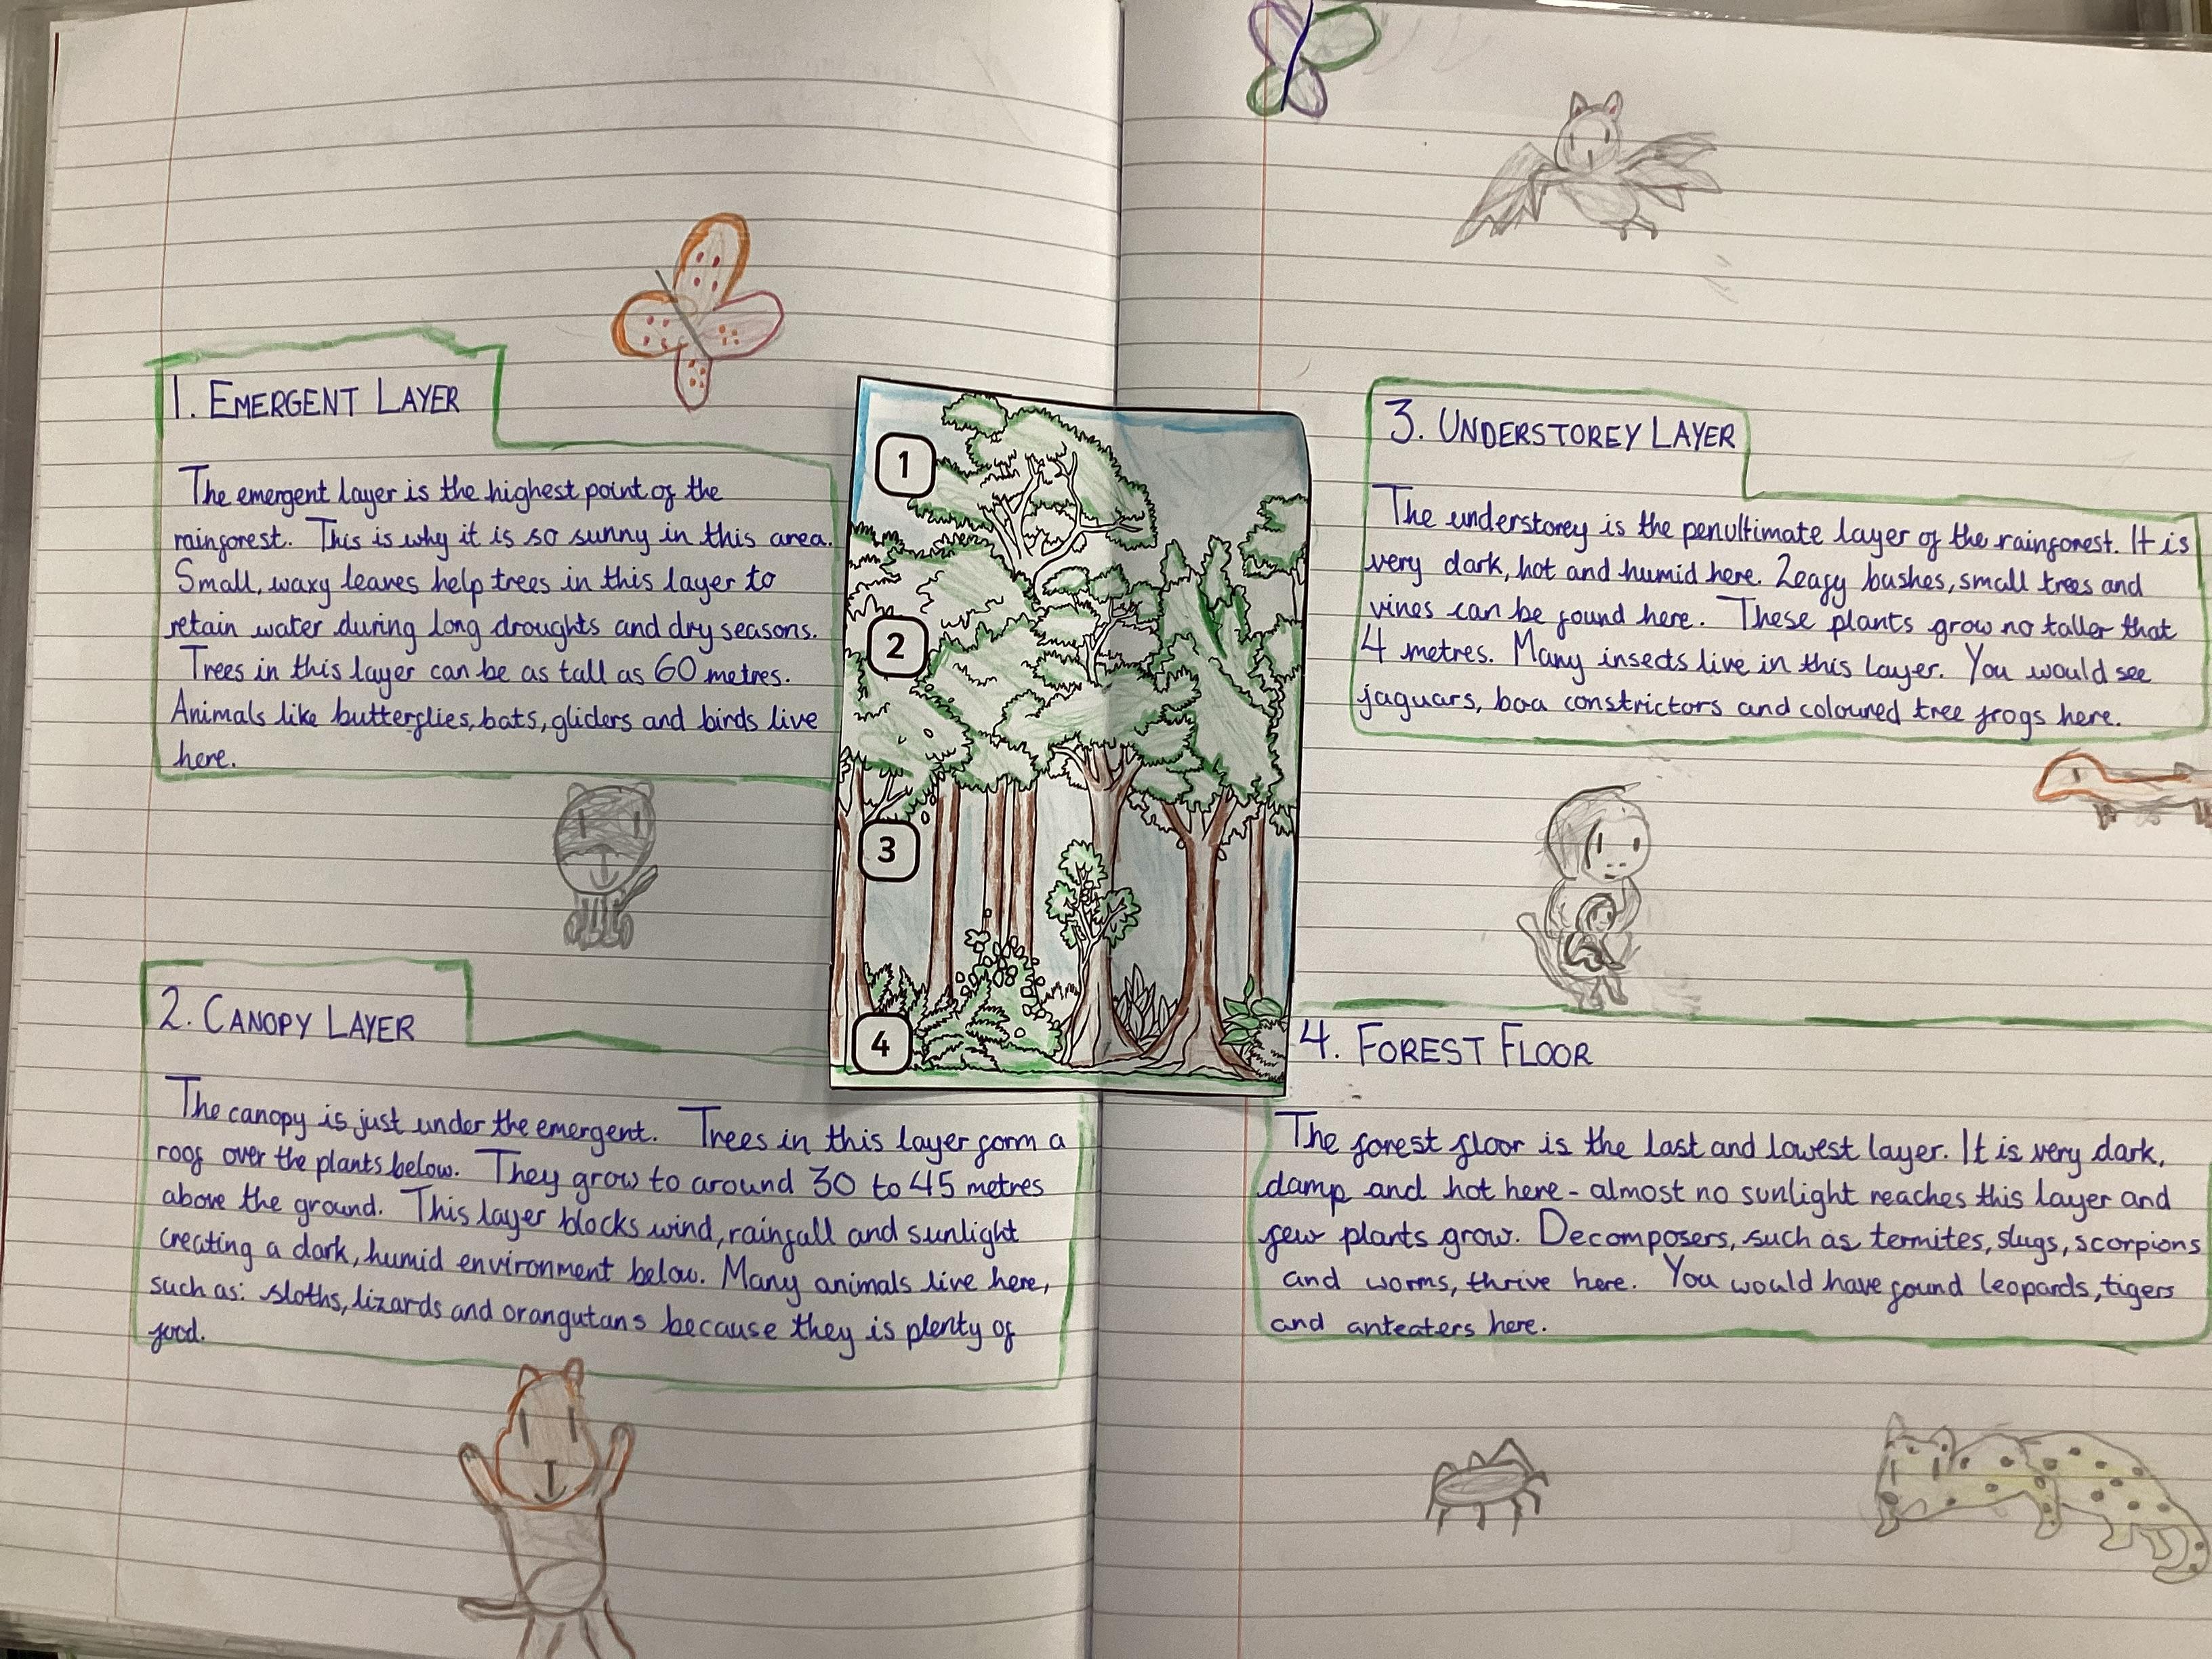 1. EMERGENT LAYER
The emergent layer is the highest point of the
rainforest. This is why it is so sunny in this area.
Small, waxy leaves help trees in this layer to
retain water during long droughts and dry seasons.
Trees in this layer can be as tall as 60 metres.
Animals like butterflies, bats, gliders and birds live
here.
2. CANOPY LAYER
The canopy is just under the emergent. Trees in this layer form a
roof over the plants below. They grow to around 30 to 45 metres
above the ground. This layer blocks wind, rainfall and sunlight
creating a dark, humid environment below. Many animals live here,
such as: sloths, lizards and orangutans because they is plenty of
food.
1
2
3
4
3. UNDERSTOREY LAYER
The understorey is the penultimate layer of the rainforest. It is
very dark, hot and humid here. Leafy bushes, small trees and
vines can be found here. These plants grow no taller that
4 metres. Many insects live in this layer. You would see
jaguars, boa constrictors and coloured tree frogs here.
4. FOREST FLOOR
The forest floor is the last and lowest layer. It is very dark,
damp and hot here - almost no sunlight reaches this layer and
few plants grow. Decomposers, such as termites, slugs, scorpions
and worms, thrive here. You would have found leopards, tigers
and anteaters here.